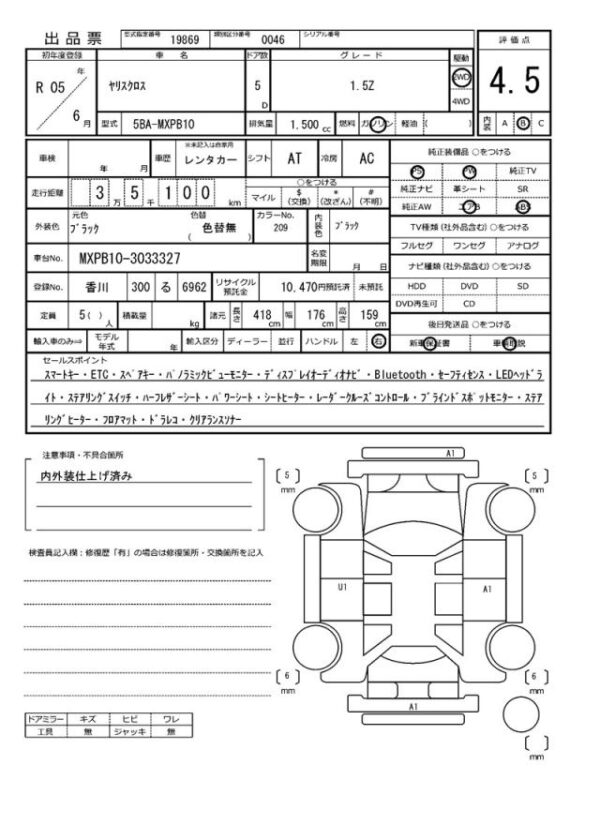 出品票 型式指定番号 19869 類別区分番号 0046 シリアル番号
評価点
4.5
内装 A B C
初年度登録 車名 ドア数 グレード 駆動
R 05 年 6 月 ヤリスクロス 5 D 1.5Z 2WD 4WD
型式 5BA-MXPB10 排気量 1,500 cc 燃料 ガソリン 軽油 ( )
車検 年 月 車歴 ※未記入は自家用 レンタカー シフト AT 冷房 AC
走行距離 3 万 5 千 1 0 0 km ○をつける マイル $ (交換) * (改ざん) # (不明)
外装色 元色 ブラック 色替 ( 色替無 ) カラーNo. 209 内装色 ブラック
車台No. MXPB10-3033327 名変期限 月 日
登録No. 香川 300 る 6962 リサイクル預託金 10,470円預託済 未預託
定員 5( ) 人 積載量 kg 諸元 長さ 418 cm 幅 176 cm 高さ 159 cm
輸入車のみ⇒ モデル年式 年 輸入区分 ディーラー 並行 ハンドル 左 右
純正装備品 ○をつける
PS PW 純正TV
純正ナビ 革シート SR
純正AW エアB ABS
TV種類 (社外品含む) ○をつける
フルセグ ワンセグ アナログ
ナビ種類 (社外品含む) ○をつける
HDD DVD SD
DVD再生可 CD
後日発送品 ○をつける
新車保証書 車輌取説
セールスポイント
スマートキー・ETC・スペアキー・パノラミックビューモニター・ディスプレイオーディオナビ・Bluetooth・セーフティセンス・LEDヘッドラ
イト・ステアリングスイッチ・ハーフレザーシート・パワーシート・シートヒーター・レーダークルーズコントロール・ブラインドスポットモニター・ステア
リングヒーター・フロアマット・ドラレコ・クリアランスソナー
注意事項・不具合箇所
内外装仕上げ済み
検査員記入欄：修復歴「有」の場合は修復箇所・交換箇所を記入
ドアミラー キズ ヒビ ワレ
工具 無 ジャッキ 無
A1
5 mm
5 mm
U1
A1
6 mm
6 mm
A1
mm